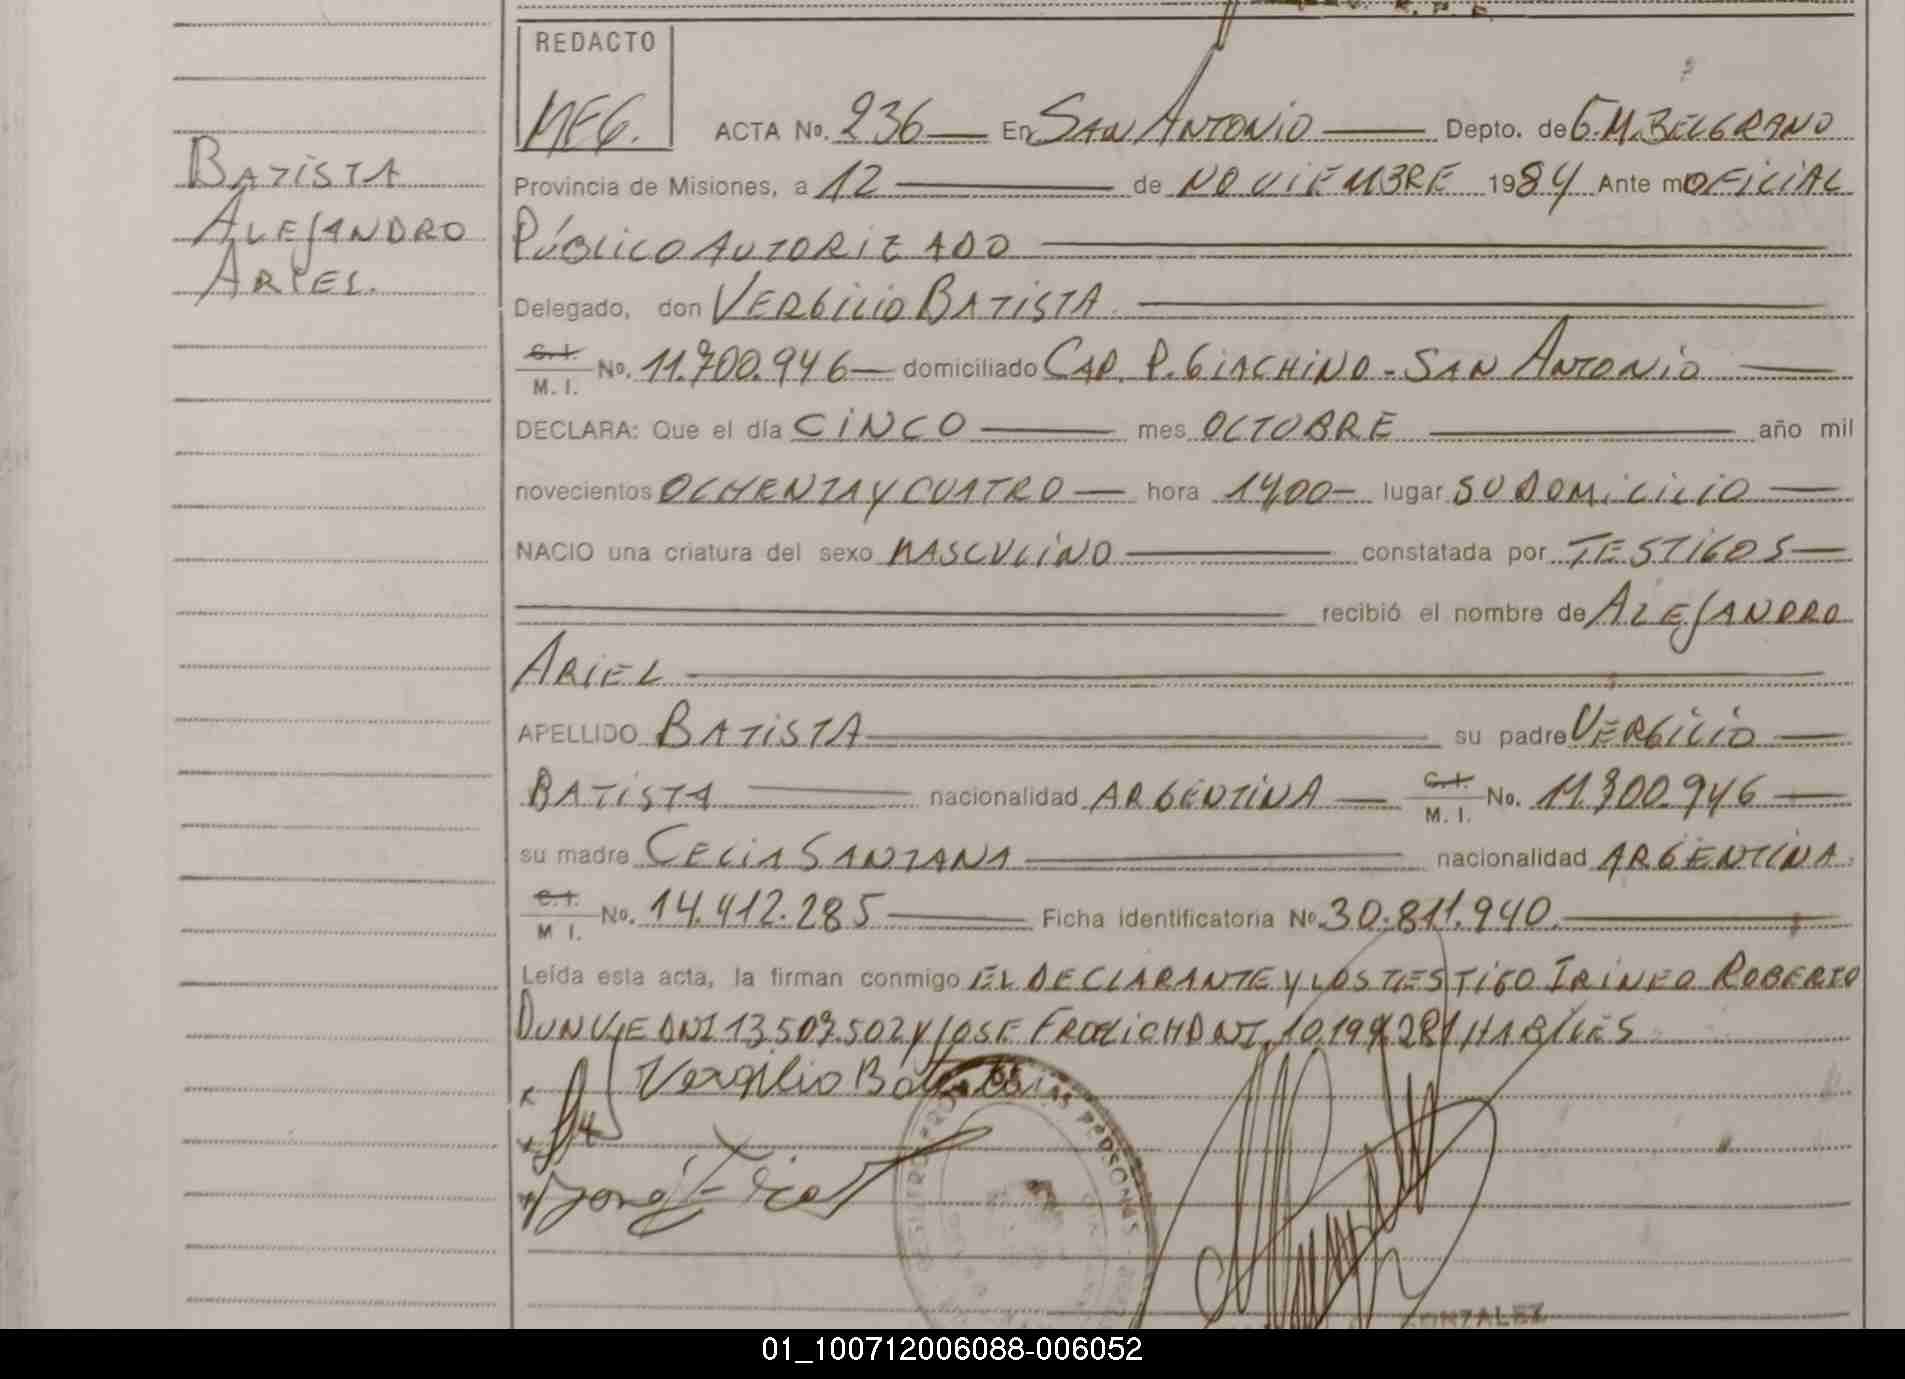 REDACTO
MEG.
ACTA No. 236 En SAN ANTONIO Depto. de G.M.BELGRANO
BATISTA
ALEJANDRO
ARIEL.
Provincia de Misiones, a 12 de NOVIEMBRE 1984 Ante mi OFICIAL
PÚBLICO AUTORIZADO
Delegado, don VERGILIO BATISTA
C.I.
M. I. No. 11.700.946 domiciliado CAP. P. GIACHINO - SAN ANTONIO
DECLARA: Que el día CINCO mes OCTUBRE año mil
novecientos OCHENTA Y CUATRO hora 1400 lugar SU DOMICILIO
NACIO una criatura del sexo MASCULINO constatada por TESTIGOS
recibió el nombre de ALEJANDRO
ARIEL
APELLIDO BATISTA su padre VERGILIO
BATISTA nacionalidad ARGENTINA C.I. M. I. No. 11.700.946
su madre CELIA SANTANA nacionalidad ARGENTINA
C.I.
M I. No. 14.412.285 Ficha identificatoria No 30.811.940
Leída esta acta, la firman conmigo EL DECLARANTE Y LOS TESTIGO IRINEO ROBERTO
DNI 13.507.502 Y JOSE FROLICH DNI. 10.199.281 HABILES
Vergilio Batista
PERSONAS
GONZALEZ
01_100712006088-006052